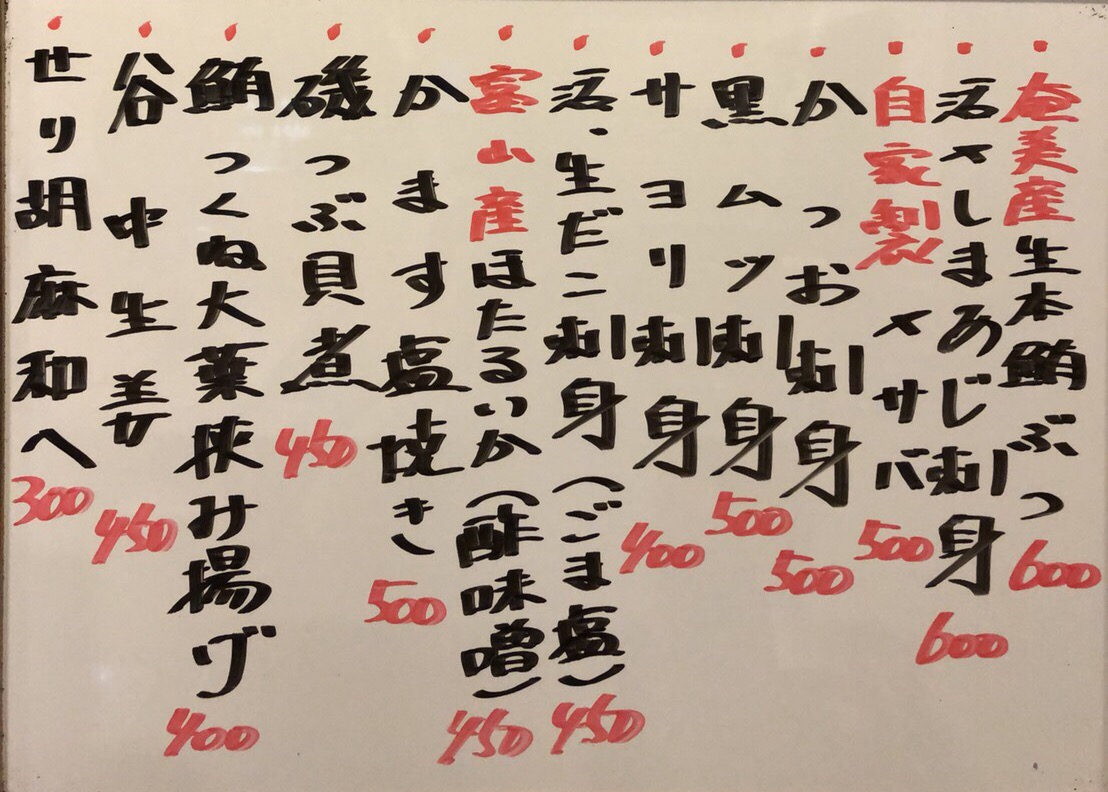 奄美産生本鮪ぶつ 600
活〆しまあじ刺身 600
自家製〆サバ 500
かつお刺身 500
黒ムツ刺身 500
サヨリ刺身 400
活、生だこ刺身(ごま塩) 450
富山産ほたるいか(酢味噌) 450
かます塩焼き 500
磯つぶ貝煮 450
鮪つくね大葉挟み揚げ 400
谷中生姜 450
せり胡麻和へ 300